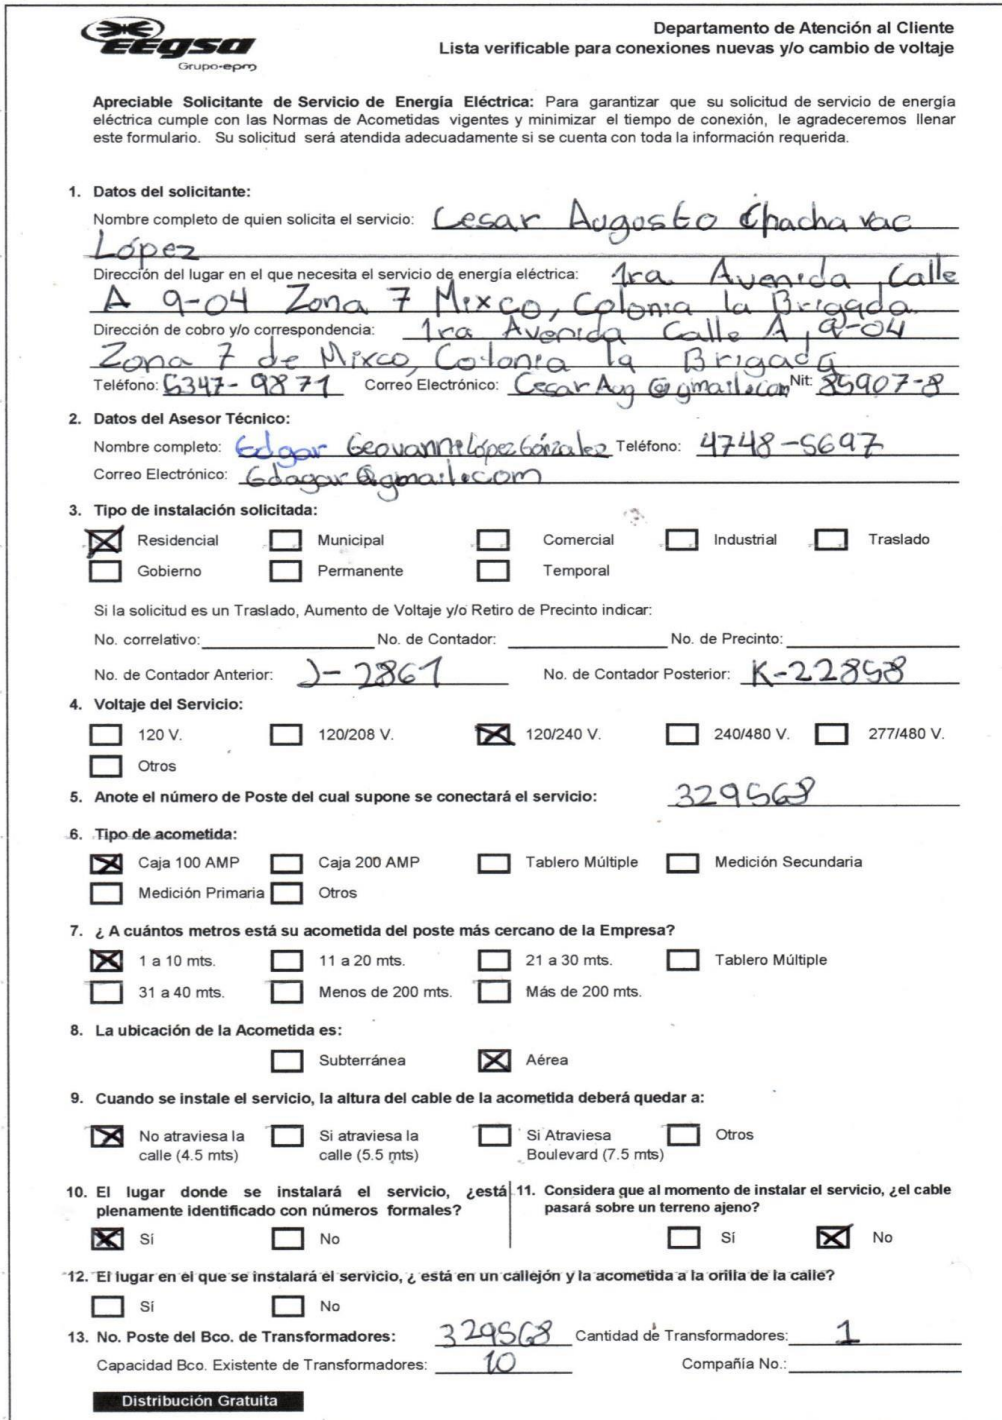 EEGSA
Grupo-epm
Departamento de Atención al Cliente
Lista verificable para conexiones nuevas y/o cambio de voltaje
Apreciable Solicitante de Servicio de Energía Eléctrica: Para garantizar que su solicitud de servicio de energía
eléctrica cumple con las Normas de Acometidas vigentes y minimizar el tiempo de conexión, le agradeceremos llenar
este formulario. Su solicitud será atendida adecuadamente si se cuenta con toda la información requerida.
1. Datos del solicitante:
Nombre completo de quien solicita el servicio: Cesar Augusto Chacha vac
López
Dirección del lugar en el que necesita el servicio de energía eléctrica: 1ra Avenida, Calle
A 9-04 Zona 7 Mixco, Colonia la Brigada.
Dirección de cobro y/o correspondencia: 1ra Avenida Calle A, 9-04
Zona 7 de Mixco, Colonia la Brigada
Teléfono: 5347-9871 Correo Electrónico: CesarAug@gmail.com Nit: 85907-8
2. Datos del Asesor Técnico:
Nombre completo: Edgar Geovanni López Gónzalez Teléfono: 4748-5697
Correo Electrónico: Edagar@gmail.com
3. Tipo de instalación solicitada:
Residencial Municipal Comercial Industrial Traslado
Gobierno Permanente Temporal
Si la solicitud es un Traslado, Aumento de Voltaje y/o Retiro de Precinto indicar:
No. correlativo: No. de Contador: No. de Precinto:
No. de Contador Anterior: J-2861 No. de Contador Posterior: K-22858
4. Voltaje del Servicio:
120 V. 120/208 V. 120/240 V. 240/480 V. 277/480 V.
Otros
5. Anote el número de Poste del cual supone se conectará el servicio: 329568
6. Tipo de acometida:
Caja 100 AMP Caja 200 AMP Tablero Múltiple Medición Secundaria
Medición Primaria Otros
7. ¿ A cuántos metros está su acometida del poste más cercano de la Empresa?
1 a 10 mts. 11 a 20 mts. 21 a 30 mts. Tablero Múltiple
31 a 40 mts. Menos de 200 mts. Más de 200 mts.
8. La ubicación de la Acometida es:
Subterránea Aérea
9. Cuando se instale el servicio, la altura del cable de la acometida deberá quedar a:
No atraviesa la Si atraviesa la Si Atraviesa Otros
calle (4.5 mts) calle (5.5 mts) Boulevard (7.5 mts)
10. El lugar donde se instalará el servicio, ¿está
plenamente identificado con números formales?
Sí No
11. Considera que al momento de instalar el servicio, ¿el cable
pasará sobre un terreno ajeno?
Sí No
12. El lugar en el que se instalará el servicio, ¿ está en un callejón y la acometida a la orilla de la calle?
Sí No
13. No. Poste del Bco. de Transformadores: 329568 Cantidad de Transformadores: 1
Capacidad Bco. Existente de Transformadores: 10 Compañía No.:
Distribución Gratuita